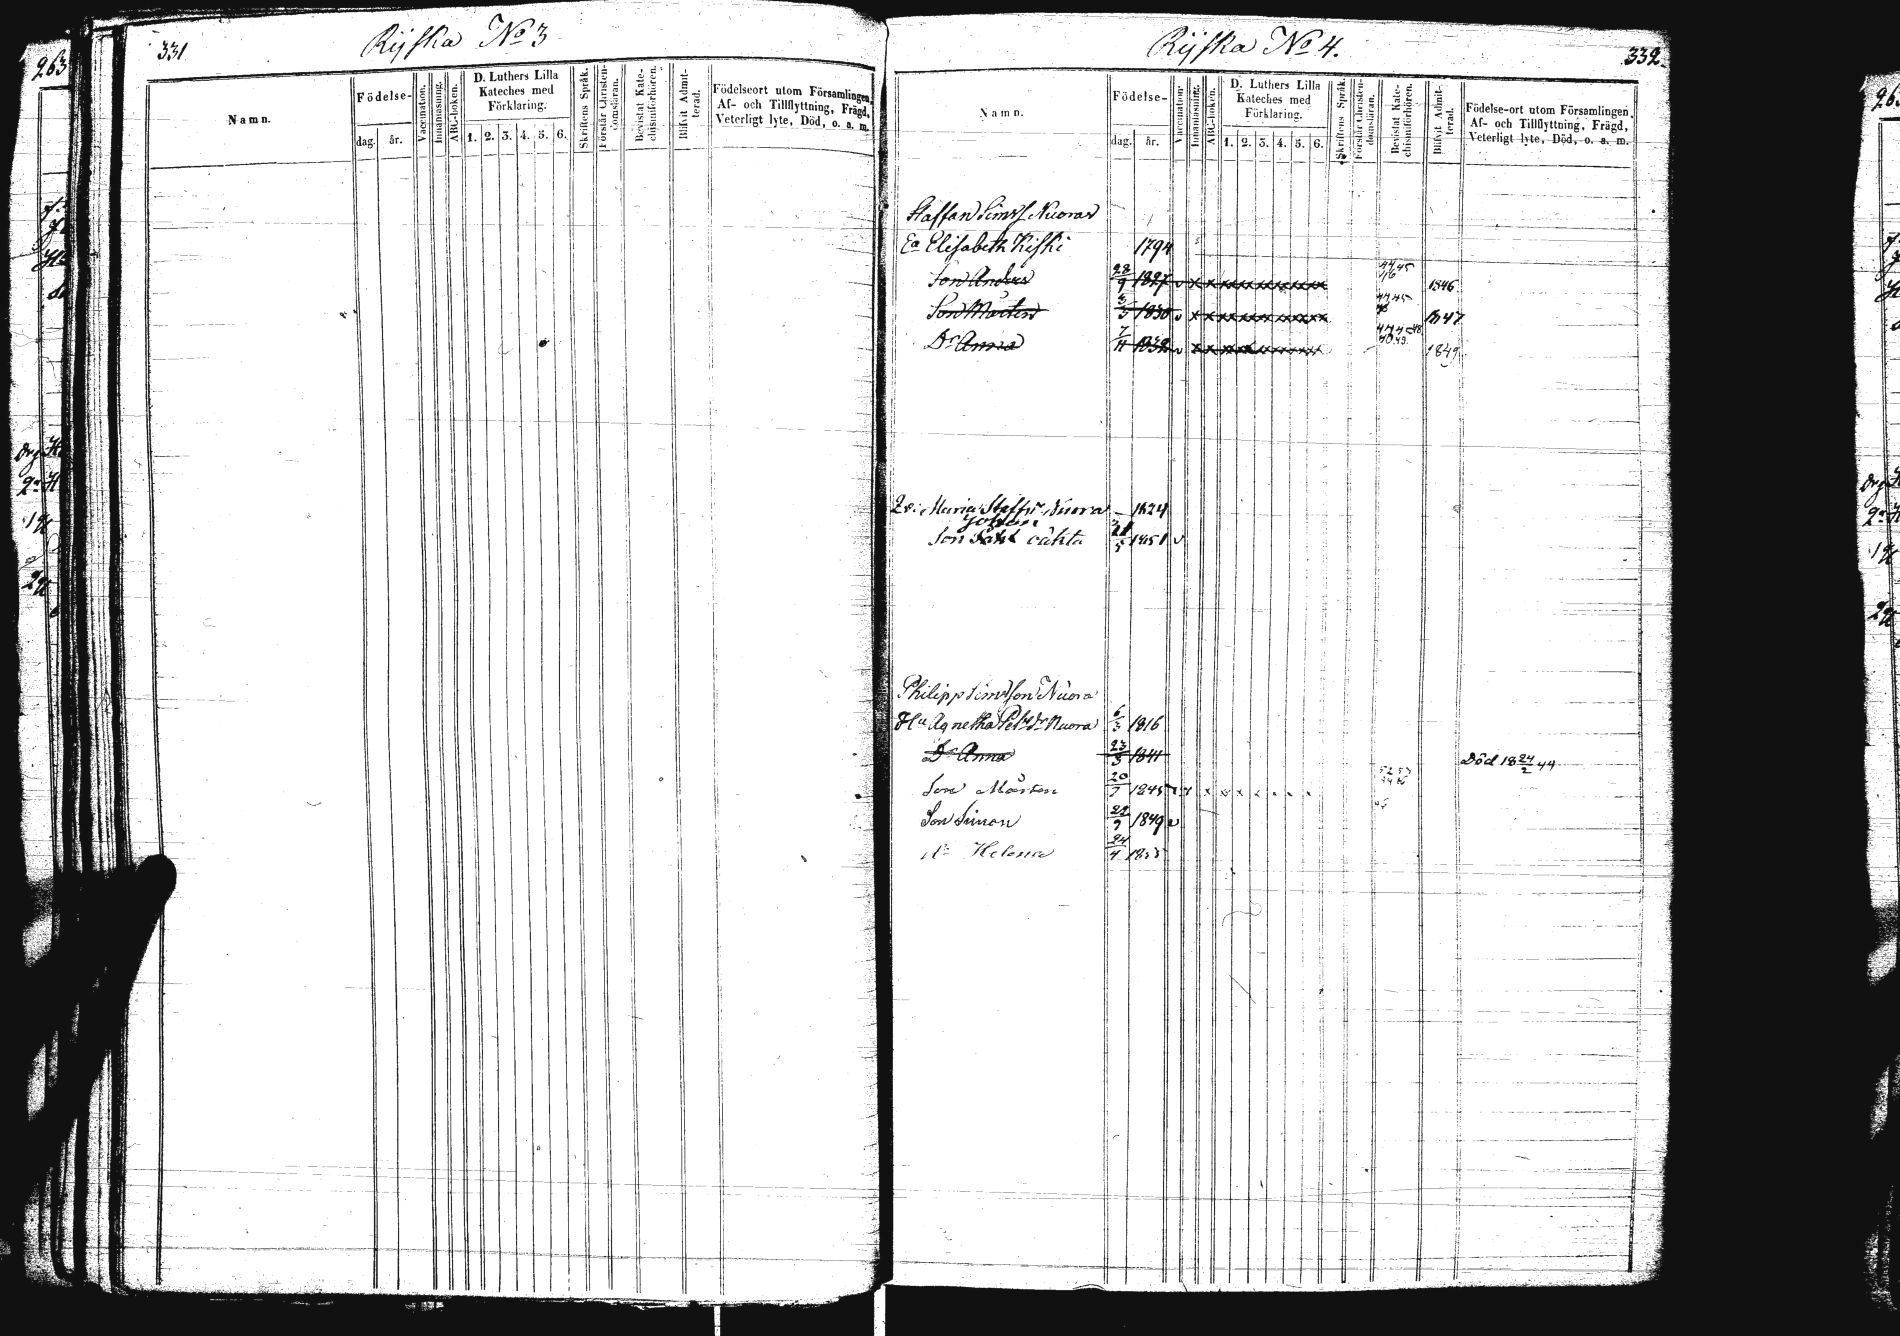 331
Rijska No 3
Namn.
Födelse-
dag.
år.
Vaccination.
Innanläsning.
ABC-boken.
D. Luthers Lilla
Kateches med
Förklaring.
1. 2. 3. 4. 5. 6.
Skriftens Språk.
Förstår Christen-
domsläran.
Bevistat Kate-
chismiförhören.
Blifvit Admit-
terad.
Födelseort utom Församlingen,
Af- och Tillflyttning, Frägd,
Veterligt lyte, Död, o. a. m.
Rijska No 4.
332.
Namn.
Födelse-
dag.
år.
Vaccination.
Innanläsning.
ABC-boken.
D. Luthers Lilla
Kateches med
Förklaring.
1. 2. 3. 4. 5. 6.
Skriftens Språk.
Förstår Christen-
domsläran.
Bevistat Kate-
chismiförhören.
Blifvit Admit-
terad.
Födelse-ort utom Församlingen,
Af- och Tillflyttning, Frägd,
Veterligt lyte, Död, o. a. m.
Staffan Simss Nuora
Ea Elisabeth Kiski 1794
Son Anders 28/9 1827 v x x xxxxxxxxxx 44 45 46 1846
Son Mårten 3/5 1830 v x x xxxxxxxxxx 44 45 1847
Dr Anna 7/11 1832 v x xxxxxxxxx 1849
Maria Nuora – 1824
Johan
Son 1851 v
Philipp Simsson Nuora
Hu Agnetha Petrdr Nuora 6/3 1816
Dr Anna 23/3 1841 Död 18 24/2 44
Son Mårten 20/7 1845
Son Simon 22/9 1849 v
dr Helena 24/4 1855
263